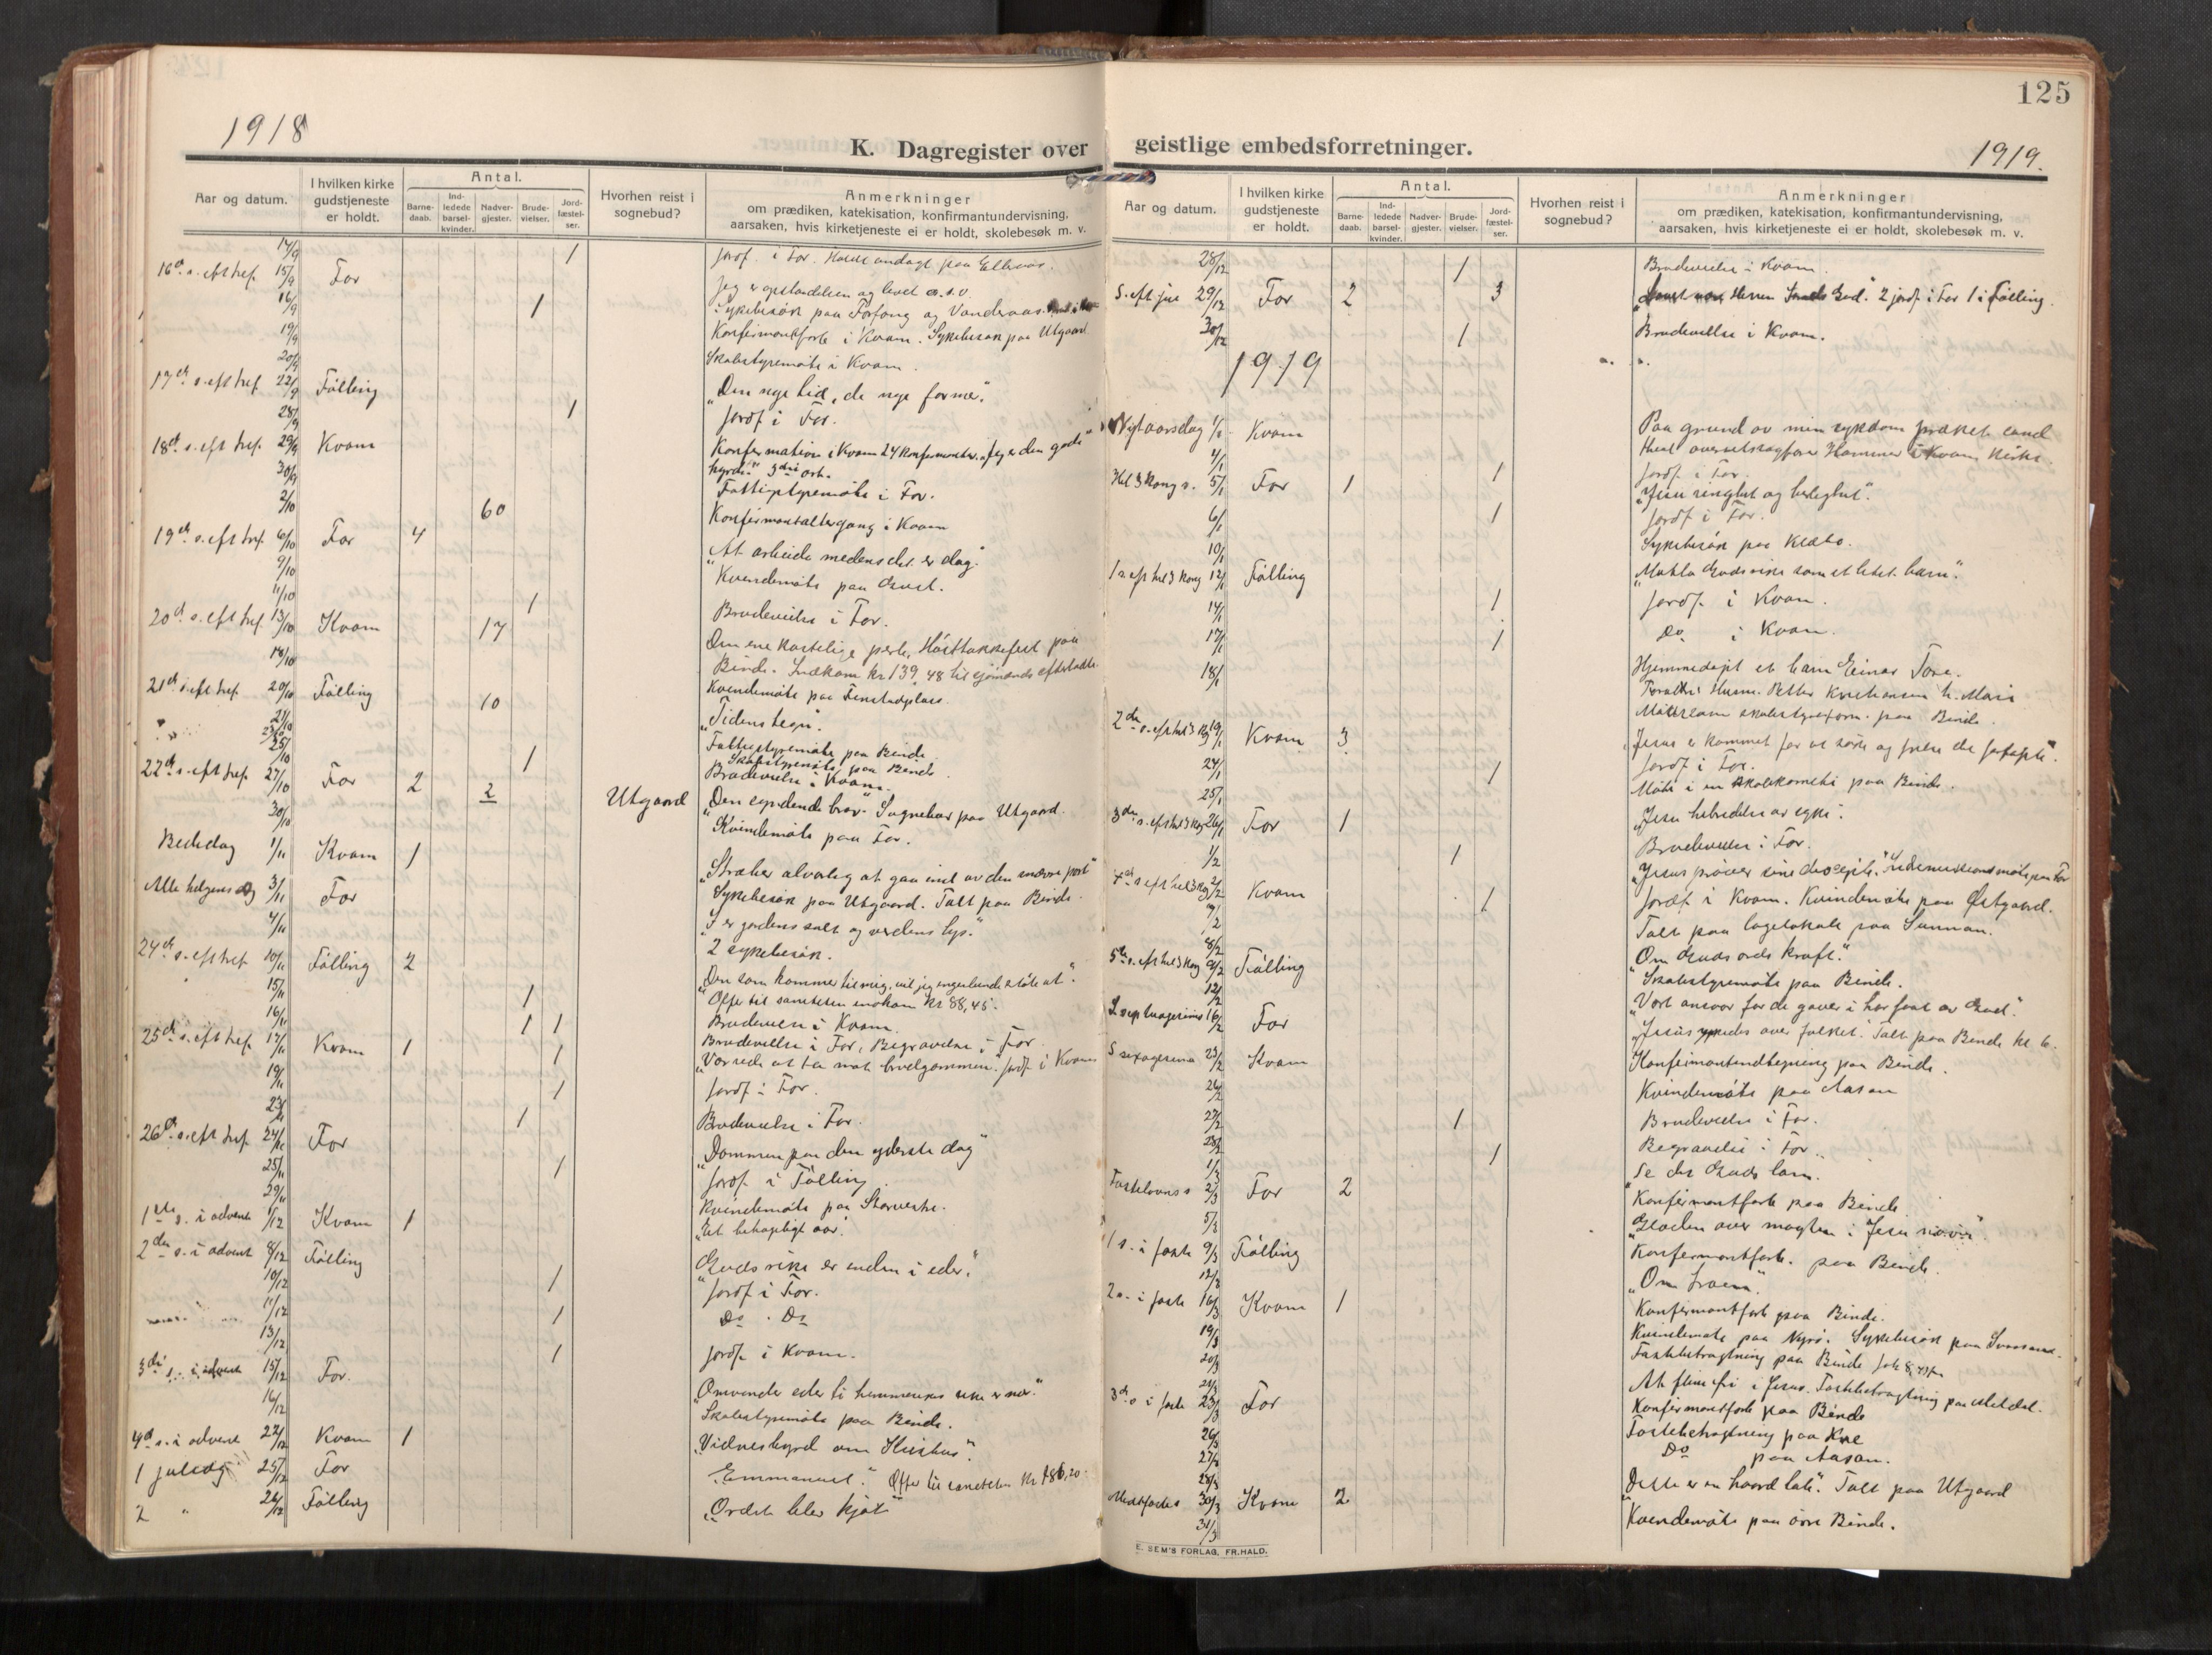 125
1918
K. Dagregister over geistlige embedsforretninger.
1919.
Aar og datum.
I hvilken kirke gudstjeneste er holdt.
Antal.
Barnedaab.
Indledede barselkvinder.
Nadvergjester.
Brudevielser.
Jordfæstelser.
Hvorhen reist i sognebud?
Anmerkninger
om prædiken, katekisation, konfirmantundervisning,
aarsaken, hvis kirketjeneste ei er holdt, skolebesøk m. v.
14/9 1 Jordf. i For. Holdt andagt paa
16de s. eft tref. 15/9 For Jeg er opstandelsen og livet o.s.v.
16/9 1 Sykebesøk paa Forfang og
19/9 Konfirmantforb. i Kvam. Sykebesøk paa Utgaard
20/9 Skolestyremøte i Kvam.
17de s. eft tref. 22/9 Følling „Den nye tid, de nye former."
28/9 1 Jordf i For.
18de s. eft tref. 29/9 Kvam Konfirmation i Kvam 24 konfirmanter. „Jeg er den gode
hyrde."
30/9 Fattigstyremøte i For.
2/10 60 Konfirmantaltergang i Kvam
19de s. eft tref. 6/10 For 4 „At arbeide medens det er dag."
9/10 Kvindemøte paa
11/10 1 Brudevielse i For.
20de s. eft tref. 13/10 Kvam 17 Den ene kostelige perle. Høsttakkefest paa
Binde. Indkom kr 139,48 til sjømænds efterladte
18/10 Kvindemøte paa Finstadplass
21de s. eft tref. 20/10 Følling 10 „Tidens tegn".
21/10 Fattigstyremøte paa Binde
23/10 Skolestyremøte paa Binde
25/10 1 Brudevielse i Kvam.
22de s. eft tref. 27/10 For 2 2 Utgaard „Den syndende bror." Sognebud paa Utgaard.
30/10 Kvindemøte paa For.
Bededag 1/11 Kvam 1 „Stræber alvorlig at gaa ind av den snævre port"
Sykebesøk paa Utgaard. Talt paa Binde.
Alle helgens dag 3/11 For „I er jordens salt og verdens lys."
4/11 2 sykebesøk.
24de s. eft tref 10/11 Følling 2 „Den som kommer til mig, vil jeg ingenlunde støte ut".
Offer til saniteten indkom kr 88,45.
15/11 1 Brudevielse i Kvam.
16/11 1 1 Brudevielse i For, Begravelse i For
25de s. eft tref 17/11 Kvam 1 1 „Vær rede at ta mot brudgommen." Jordf i Kvam
19/11 1 Jordf i For.
23/11 1 Brudevielse i For.
26de s. eft tref. 24/11 For „Dommen paa den yderste dag"
25/11 1 Jordf. i Følling
29/11 Kvindemøte paa
1ste s. i advent 1/12 Kvam 1 „Et behagelig aar".
2den s. i advent 8/12 Følling „Guds rike er inden i eder."
10/12 1 Jordf i For.
11/12 1 Do. Do
13/12 1 Jordf. i Kvam.
3die s. i advent 15/12 For. „Omvender eder ti himmerikes rike er nær."
16/12 Skolestyremøte paa Binde.
4de s. i advent 22/12 Kvam 1 „Vidnesbyrd om Kristus".
1 juledag 25/12 For „Emmanuel." Offer til saniteten kr 186,20.
2 " 26/12 Følling „Ordet blev kjøt"
Aar og datum.
I hvilken kirke gudstjeneste er holdt.
Antal.
Barnedaab.
Indledede barselkvinder.
Nadvergjester.
Brudevielser.
Jordfæstelser.
Hvorhen reist i sognebud?
Anmerkninger
om prædiken, katekisation, konfirmantundervisning,
aarsaken, hvis kirketjeneste ei er holdt, skolebesøk m. v.
28/12 1 Brudevielse i Kvam.
S. eft jul 29/12 For 2 3 Herren Gud." 2 jordf. i For 1 i Følling.
30/12 1 Brudevielse i Kvam.
1919
Nytaarsdag 1/1 Kvam Paa grund av min sykdom præket cand
theol Hammer i Kvam kirke.
4/1 1 Jordf. i For.
Hel 3 kong s. 5/1 For 1 „Jesu ringhet og herlighet".
6/1 1 Jordf i For.
10/1 Sykebesøk paa Klæbo.
1 s. eft hel 3 kong 12/1 Følling „Motta Guds rike som et litet barn".
14/1 1 Jordf. i Kvam.
17/1 1 Do i Kvam.
18/1 Hjemmedøpt et barn Einar Tore.
Forældre Husm. Petter Kristiansen h. Marie
skolestyreform. paa Binde.
2den s. eft hel 3 kg 19/1 Kvam 3 „Jesus er kommet for at søke og frelse det fortapte".
24/1 1 Jordf i For.
25/1 Møte i en skolekomite paa Binde.
3die s. eft hel 3 kg 26/1 For 1 „Jesu helbredelse av syke".
1/2 1 Brudevielse i For.
4de s eft hel 3 kg 2/2 Kvam „Jesus prøver sine disciple." Indremissionsmøte paa For
7/2 1 Jordf i Kvam. Kvindemøte paa Østgaard.
8/2 Talt paa lagslokale paa Sunnan.
5te s. eft hel 3 kong 9/2 Følling „Om Guds ords kraft."
12/2 Skolestyremøte paa Binde.
S septuagesima 16/2 For „Vort ansvar for de gaver vi har faat av Gud".
S sexagesima 23/2 Kvam „Jesus ynkedes over folket." Talt paa Binde kl 6.
26/2 Konfirmantindtegning paa Binde.
27/2 Kvindemøte paa Aasan
28/2 1 Brudevielse i For.
1/3 1 Begravelse i For.
Fastelavns s 2/3 For 2 „Se det Guds lam.
5/3 Konfirmantforb paa Binde
1 s. i faste 9/3 Følling „Glæden over magten i Jesu navn".
12/3 Konfirmantforb. paa Binde.
2 s. i faste 16/3 Kvam 1 „Om troen".
19/3 Konfirmantforb paa Binde.
20/3 Kvindemøte paa Sykebesøk paa
21/3 Fastebetragtning paa Binde
3de s i faste 23/3 For Fastebetragtning paa
26/3 Konfirmantforb paa Binde
27/3 Fastebetragtning paa
28/3 Do paa Aasan.
Midtfastes 30/3 Kvam 2 „Dette er en haard tale." Talt paa Utgaard
31/3 Kvindemøte paa øvre Binde.
E. SEM'S FORLAG, FR.HALD.